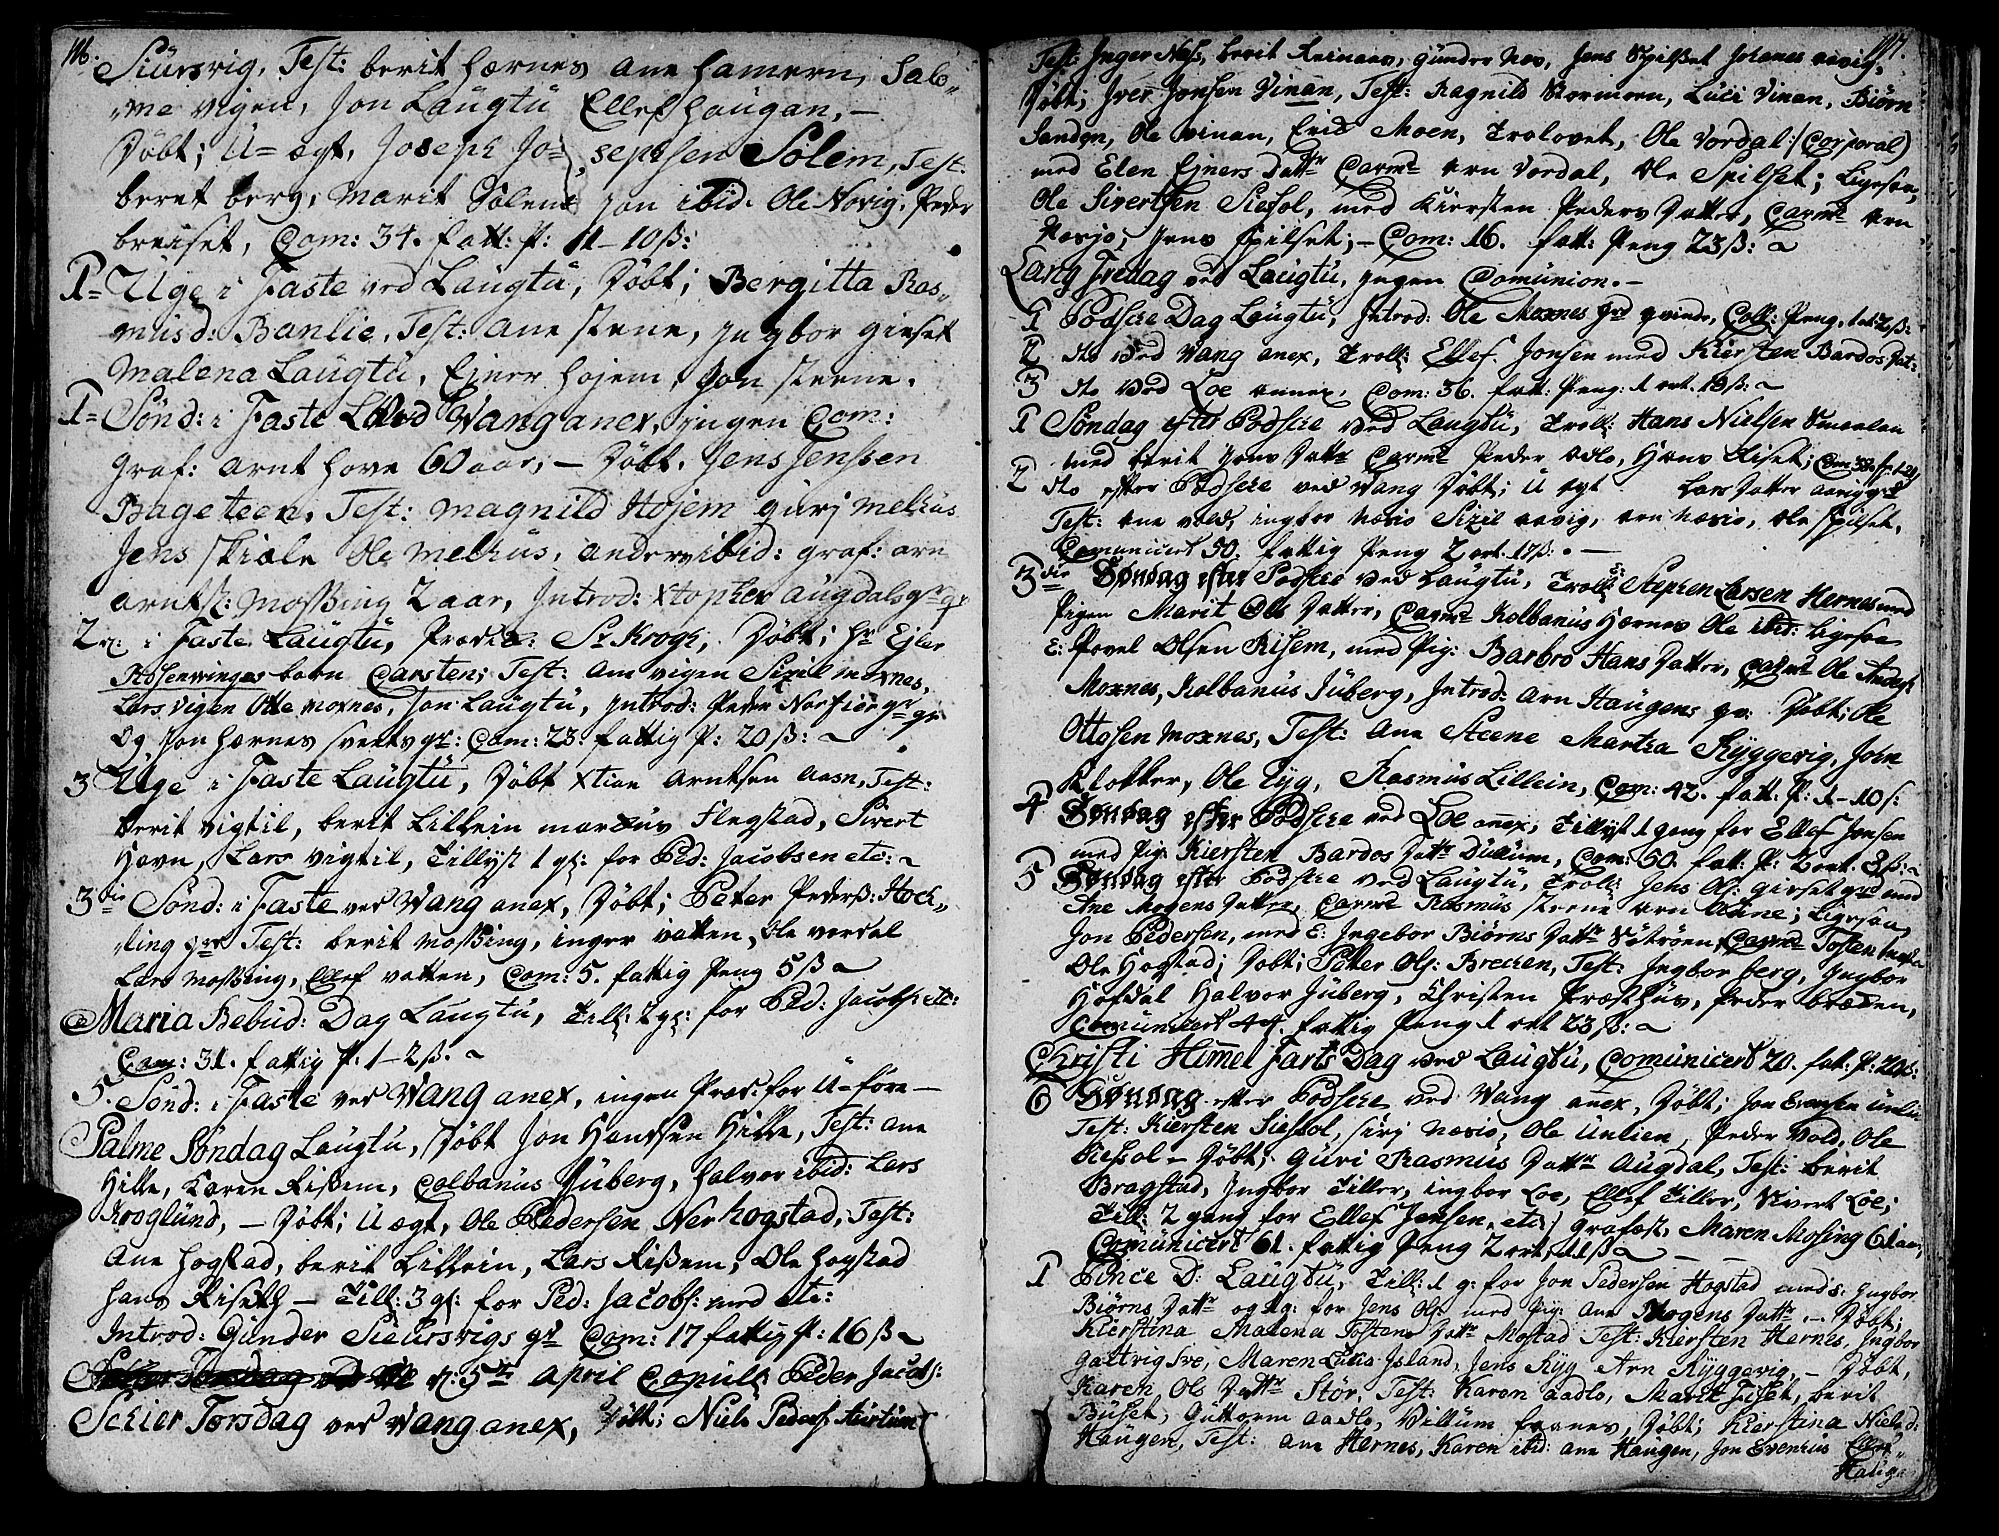 116.
Siursvig, Test: berit Hernes ane hamern, Salo„
me vigen, Jon Laugtu Ellef haugan, –
Døbt; U= ægt, Joseph Jo= sephsen Solem, Test:
beret berg, marit Solem jon ibid. Ole Novig. Peder
breiset, Com: 34. fatt: P: 1–10ß:
1= Uge i Faste ved Laugtu, Døbt; Bergitta Ras„
musd: Banlie, Test: ane steene, Ingbor givset
Malena Laugtu, Ejner hojem, Jon steene.
1= Sønd: i Faste ved Wang anex, ingen Com:
Graf: arnt hove 60 aar, – Døbt. Jens Jenssen
Bageteen, Test: magnild Hojem gurj melhus
Jens skiole Ole melhus, anders ibid: graf: arn
arnts: mossing 2 aar, Introd: Xtopher augdals gr: qv
2n: i Faste Laugtu, Præd: Sr Krogh, Døbt; hr Ejler
Rosenvinges barn Carsten; Test: Am vigen Sizil moxnes,
Lars vigen Otte moxnes, Jon Laugtu, Introd: Peder Norfier gr qv
og Jon hærnes sverts qv: Com: 23: fattig P: 20 ß:
3 Uge i Faste Laugtu, Døbt Xtian Arntsen Aasn, Test:
berit vigtil, berit Lillein marcus Flegstad, Sivert
Hævn, Lars vigtil, Tillyst 1 g: for Ped: Jacobsen etc:
3die Sønd: i Faste ved Wang anex, Døbt; Peter Peders: Hoch„
ling Test: berit mossing, inger vatten, Ole verdal
Lars mossing, Ellef vatten, Com: 5. fattig Peng 5 ß
Maria Bebud: Dag Laugtu, Till: 2 g: for Ped: Jacobs: etc:
Com: 31. fattig P: 1–2 ß.
5. Sønd: i Faste ved Wang anex, ingen Præd: for U=føre –
Palme Søndag Laugtu, Døbt Jon Handsen Hille, Test: ane
Hille, Karen Rissem, Colbanus Juberg, halvor ibid: Lars
Kroglund, – Døbt; U ægt, Ole Pedersen Nerhogstad, Test:
Ane hogstad, berit Lillein, Lars Rissem, Ole hogstad
hans Riseth – Till: 3 g: for Ped: Jacobs: med etc:
Introd: Gunder Siursvigs qv Com: 17 fattig P: 16 ß
d: 5te April Copul: Peder Jacobs:
Schier Torsdag ved Wang anex, Døbt: Niels Peders:
117.
Test: Inger Ness, berit Reinaas, gunder Nov, Jens Spilset Johanes
Døbt; Iver Jonsen Vinan, Test: Ragnild Stormoen, Luci Vinan, Biørn
Sanden, Ole vinan, Erik Moen, Trolovet, Ole Vordal :/(Corporal)
med Elen Ejners Dattr Caverd arn Vordal, Ole Spilset; Ligesaa,
Ole Sivertsen Siesol, med Kiersten Peders Datter, Caverd arn
Næsjo, Jens Spilset; – Com: 16. fatt: Peng 23 ß:
Lang Fredag ved Laugtu, ingen Comunion. –
1 Podsche Dag Laugtu, Introd: Ole Moxnes gr qvinde, Coll: Peng.
2 dto ved Wang anex, Troll: Ellef Jonsen med Kiersten Bardos Dat:
3 dto ved Loe annex, Com: 36. fatt: Peng: 1 ort. 18 ß:
1 Søndag efter Podsche ved Laugtu, Troll: Hans Nielsen
med berit Jons Dattr Caverd Peder Adlo, Hans Riset;
2 dto efter Podsche ved Wang Døbt; U ægt Lars Datter
Test: Ane vold, ingbor Næsio Sizil aavig, arn næsio, Ole Spilset,
Comunicert 50. fattig Peng 2 ort. 17 ß.
3die Søndag efter Podsche ved Laugtu, Troll: Stephen Larsen Hernes med
Pigen Marit Ols Datter, Caverd Kolbanus Hernes Ole ibid: Ligesaa
E: Povel Olsen Risem, med Pig: Barbro Hans Datter, Caverd Ole
Moxnes, Kolbanus Juberg, Introd: Arn Haugens qv: Døbt; Ole
Ottosen Moxnes, Test: Ane Steene Martha Ryggevig, John
Klokker, Ole ryg, Rasmus Lillein, Com: 42. fatt: P: 1–10 ß:
4 Søndag efter Podsche ved Loe anex, Tillyst 1 gang for Ellef Jonsen
med Pig: Kiersten Bardos Dattr, Com: 50. fatt: P: 2 ort. 8 ß:
5 Søndag efter Podsche ved Laugtu, Troll: Jens Ols: givset med
Ane Mogens Datter, Caverd Rasmus steene arn; Ligesaa,
Jon Pedersen, med E: Ingebor Biørns Dattr, Caverd Tosten
Ole Hogstad; Døbt; Peter Ols: Brecken, Test: Ingbor berg, Ingbor
Hofdal Halvor Juberg, Christen Præsthus, Peder brækken,
Comunicert 44. fattig Peng 1 ort 23 ß:
Christi Himmel Farts Dag ved Laugtu, Comunicert 20. fatt: P: 20 ß:
6 Søndag efter Podsche ved Wang anex, Døbt; Jon Evensen Unlie
Test: Kiersten Siesol, sirj næsio, Ole Unlien, Peder Vold, Ole
Siesol – Døbt; Guri Rasmus Dattr Augdal, Test: berit
Bragstad, Ingbor Tiller, ingbor Loe, Ellef Tiller, Sivert Loe;
Till: 2 gang for Ellef Jensen, etc; grafæst, Maren Mosing 61 aar,
Comunicert 61. fattig Peng 2 ort.
1 Pince D: Laugtu, Till: 1 g: for Jon Pedersen Hogstad med: Ingbor
Biørns Dattr og 1 g: for Jens Ols: med Pig: Ane Mogens Dattr – Døbt;
Kierstina Malena Tostens Dattr Mostad Test: Kiersten Hernes, Ingbor
Maren Lucia Island, Jens Ryg Arn Ryggevig, – Døbt,
Karen Ols Dattr Stør, Test: Karen aadlo, Marit giset, berit
Buset, Guttorm aadlo, Villum, Døbt; Kierstina Nielsd:
Haugen, Test: Ane Hernes, Karen ibid: ane Haugen, Jon Evenhus Ellef
Hauga